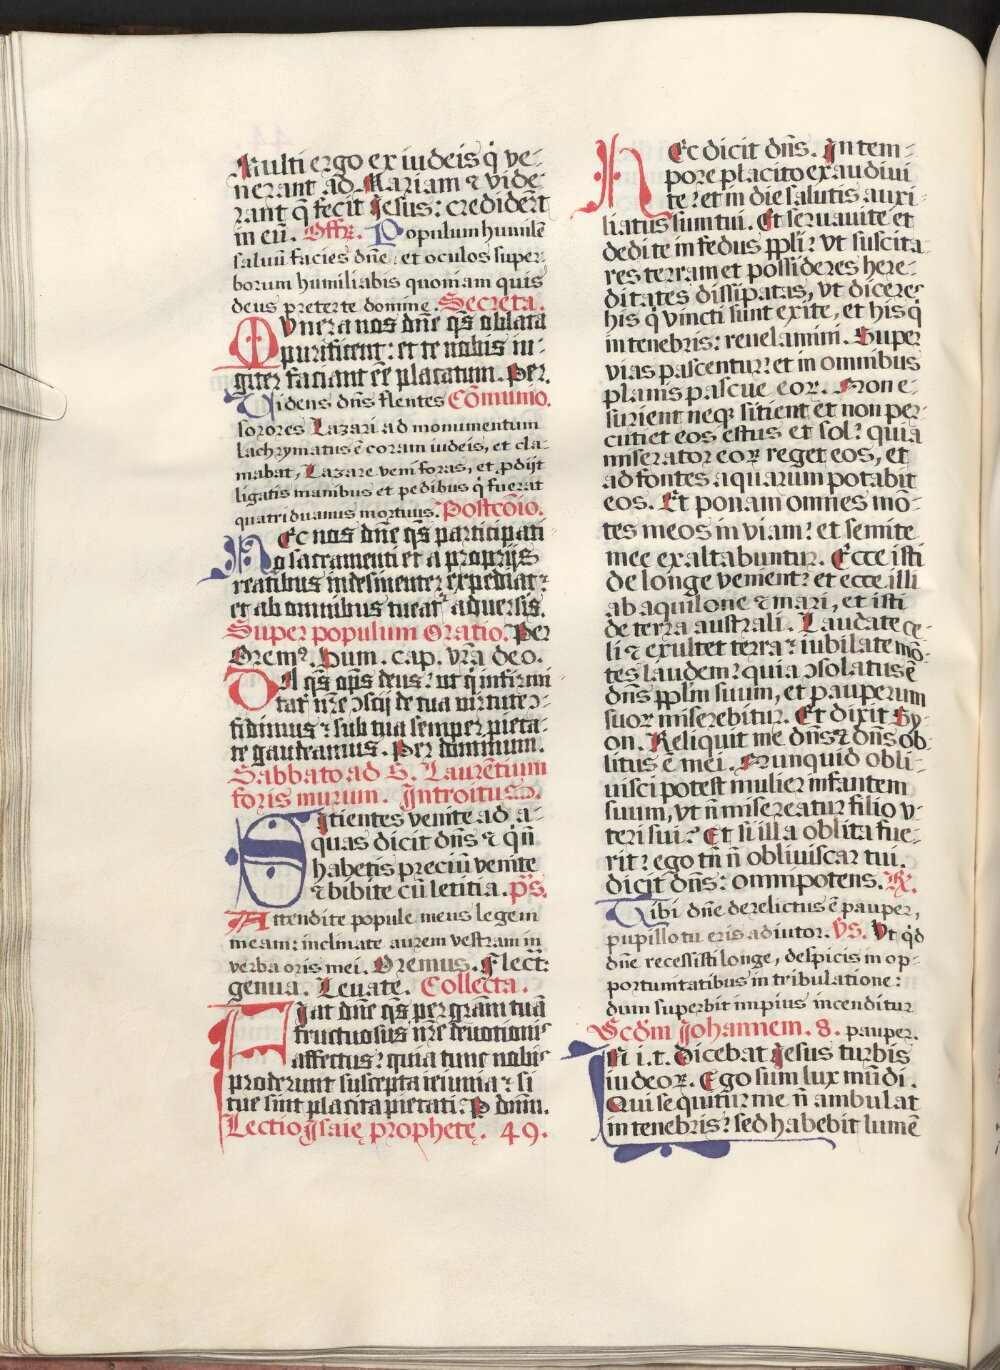 Multi ergo ex iudeis q̇ ve-
nerant ad Mariam ⁊ vide
rant q̄ fecit Jesus: credider̄t
in eū. Offr̄. Populum humilē
saluū facies dn̄e: et oculos super-
borum humiliabis quoniam quis
deus preter te domine. Secreta.
Munera nos dn̄e q̄s oblata
purificent: et te nobis iu-
giter faciant eē placatum. Per.
Videns dn̄s flentes Cōmunio.
sorores Lazari ad monumentum
lachrymatus ē coram iudeis, et cla-
mabat, Lazare veni foras, et ꝓdijt
ligatis manibus et pedibus q̇ fuerat
quatriduanus mortuus. Postcōio.
Hec nos dn̄e q̄s participati
o sacramenti et a proprijs
reatibus indesinenter expediat:
et ab omnibus tueat᷑ aduersis.
Super populum Oratio. Per
Orem⁹. Hum. cap. vr̄a deo.
Da q̄s op̄s deus: ut q̇ infirmi
tat̄ nr̄e ↄscij de tua virtute ↄ-
fidimus: sub tua semper pieta-
te gaudeamus. Per dominum.
Sabbato ad S. Laurētium
foris murum. Introitus.
Sitientes venite ad a-
quas dicit dn̄s ⁊ q̇ n̄
habetis preciū venite
⁊ bibite cū letitia. p̄s.
Attendite popule meus legem
meam: inclinate aurem vestram in
verba oris mei. Oremus. Flect̄:
genua. Leuate. Collecta.
Fiat dn̄e q̄s per gr̄am tuā
fructuosus nr̄e deuotionis
affectus: quia tunc nobis
proderunt suscepta ieiunia: si
tue sint placita pietati. P dn̄m.
Lectio Jsaię prophetę. 49.
Hec dicit dn̄s. In tem-
pore placito exaudiui
te: et in die salutis auxi-
liatus sum tui. Et seruaui te et
dedi te in fedus ppl̄i: vt suscita
res terram et possideres here-
ditates dissipatas, vt diceres
his q̇ vincti sunt exite, et his q̇
in tenebris: reuelamini. Super
vias pascentur: et in omnibus
planis pascue eoꝝ. Non e-
surient neqꝫ sitient et non per-
cutiet eos estus et sol: quia
miserator eoꝝ reget eos, et
ad fontes aquarum potabit
eos. Et ponam omnes mō-
tes meos in viam: et semite
mee exaltabuntur. Ecce isti
de longe venient: et ecce illi
ab aquilone ⁊ mari, et isti
de terra australi. Laudate cę-
li ⁊ exultet terra: iubilate mō-
tes laudem: quia ↄsolatus ē
dn̄s pplm̄ suum, et pauperum
suoꝝ miserebitur. Et dixit Sy-
on. Reliquit me dn̄s ⁊ dn̄s ob-
litus ē mei. Nunquid obli-
uisci potest mulier infantem
suum, vt n̄ misereatur filio v-
teri sui? Et si illa oblita fue-
rit: ego tn̄ n̄ obliuiscar tui.
dicit dn̄s: omnipotens. ℟.
Tibi dn̄e derelictus ē pauper,
pupillo tu eris adiutor. Vs. Vt q̇d
dn̄e recessisti longe, despicis in op-
portunitatibus in tribulatione:
dum superbit impius incenditur
Scdm̄ Johannem. 8. pauper.
In i. t. Dicebat Jesus turbis
iudeoꝝ. Ego sum lux mūdi.
Qui sequitur me n̄ ambulat
in tenebris: sed habebit lumē